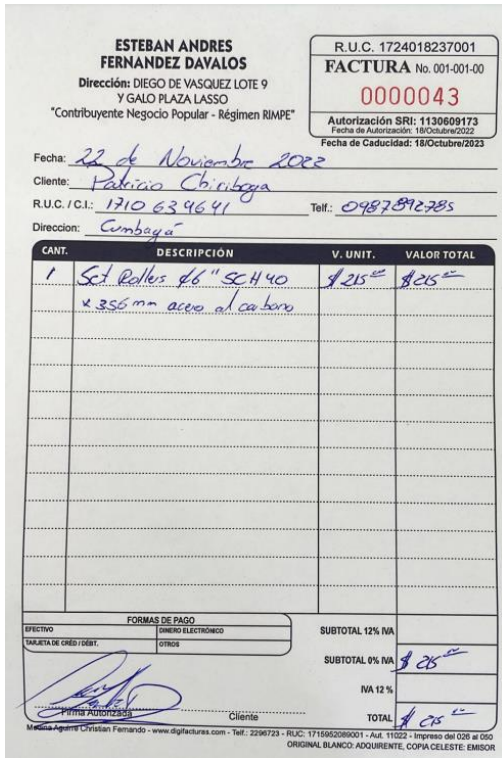 ESTEBAN ANDRES
FERNANDEZ DAVALOS
Dirección: DIEGO DE VASQUEZ LOTE 9
Y GALO PLAZA LASSO
"Contribuyente Negocio Popular - Régimen RIMPE"
R.U.C. 1724018237001
FACTURA No. 001-001-00
0000043
Autorización SRI: 1130609173
Fecha de Autorización: 18/Octubre/2022
Fecha de Caducidad: 18/Octubre/2023
Fecha: 22 de Noviembre 2022
Cliente: Patricio Chiriboga
R.U.C. / C.I.: 1710634641 Telf.: 0987892785
Direccion: Cumbayá
CANT. DESCRIPCIÓN V. UNIT. VALOR TOTAL
1 Set Rollers ø6" SCH 40 $ 215 00 $ 215 00
x 356 mm acero al carbono
FORMAS DE PAGO
EFECTIVO DINERO ELECTRÓNICO
TARJETA DE CRÉD / DÉBT. OTROS
SUBTOTAL 12% IVA
SUBTOTAL 0% IVA $ 215 00
IVA 12 %
TOTAL $ 215 00
Firma Autorizada Cliente
Medina Aguirre Christian Fernando - www.digifacturas.com - Telf.: 2296723 - RUC: 1715952089001 - Aut. 11022 - Impreso del 026 al 050
ORIGINAL BLANCO: ADQUIRENTE, COPIA CELESTE: EMISOR